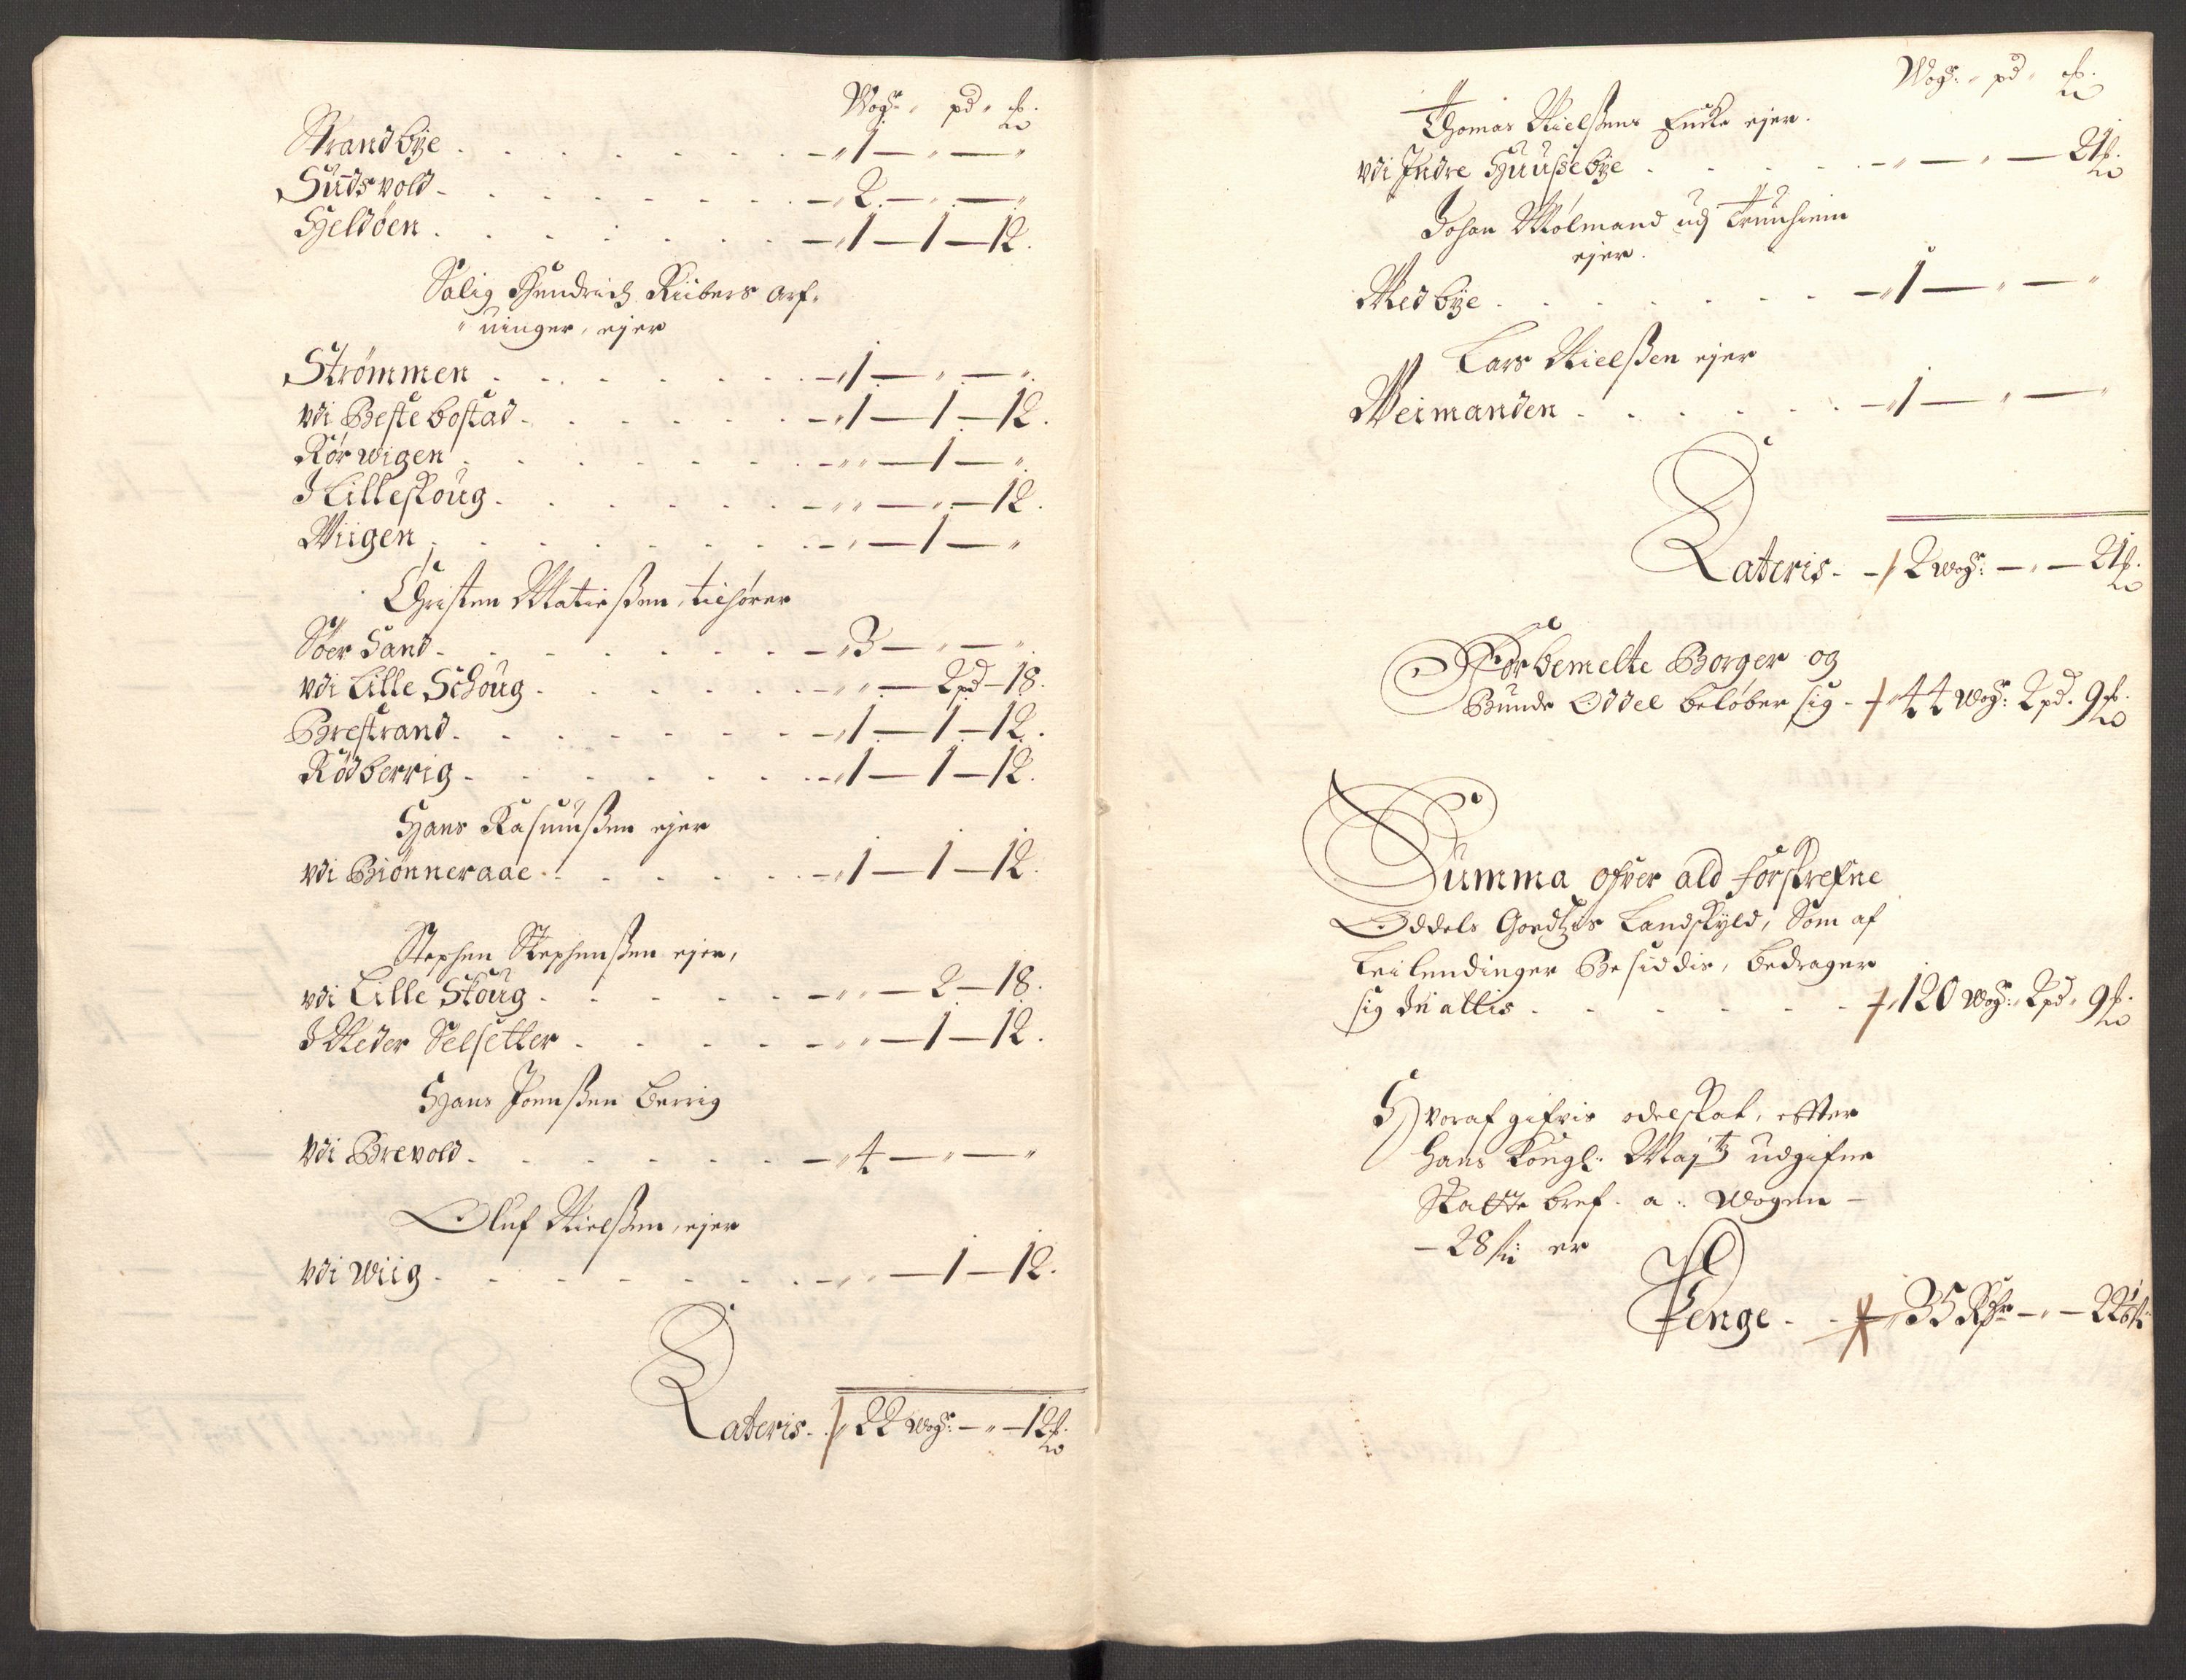 Wogr: " pd " ℔.
Strandbÿe . . . . . . . – " 1 – " – "
Sudsvold – . . . . . . – " 2 – " – "
Hieldøen . . . . . . . – " 1 – 1 – 12.
Salig Hendrich Riibers Arf-
" uinger, ejer
Strømmen . . . . . . – " 1 – " – "
Vdi Bestebostad – . . . . . – " 1 – 1 – 12.
Rørwigen . . . . . . . – " " – 1 – "
J Lilleskoug . . . . . . – " " – " – 12.
Wiigen . . . . . . . . – " – 1 – "
Christen Matisßen, tilhører
Søer Sand – . . . . . . – " 3 – " – "
Vdi Lille Schoug . . . . . – " " – 2 pd – 18.
Brestrand – . . . . . . – " 1 – 1 – 12.
Rødberrig – . . . . . . – " 1 – 1 – 12.
Hans Rasmusßen ejer
Vdi Biønneraae . . . . . – " 1 – 1 – 12.
Stephen Stephensßen ejer,
Vdi Lille Skoug . . . . . – " " – 2 – 18.
J Neder Selsetter . . . . – " " – 1 – 12.
Hans Joensßen Berrig
Vdi Brevold – . . . . . – " 4 – " – "
Oluf Nielsßen, ejer
Vdi Wiig – . . . . . . – " " – 1 – 12.
Lateris – " 22 Wogr: – " – 12 ℔.
Wogr: " pd " ℔.
Thomas Nielßens Encke ejer.
Vdi Indre Huusebÿe . . . . – " – " – 21 ℔.
Johan Mølmand udj Trunhiem
ejer.
Medbÿe . . . . . . . – " 1 – " – "
Lars Nielßen ejer
Weimanden . . . . . . – " 1 – " – "
Lateris – – " 2 Wogr: – " – 21 ℔.
Forbemelte Borger og
Bunde Oddel beløber sig – " 44 Wogr: 2 pd. 9 ℔.
Summa ofver ald forskrefne
Oddels Goedtzis Landskÿld, Som af
Leilendinger Besiddis, bedrager
sig Du Allis . . . . . . " 120 Wogr: 2 pd " 9 ℔.
Hvoraf gifvis odelskat, effter
Hans Kongl: Maÿtz udgifne
Skatte bref. a: Wogen –
– 28 ß: er
Penge – – " 35 Rdr – " – 22 ß